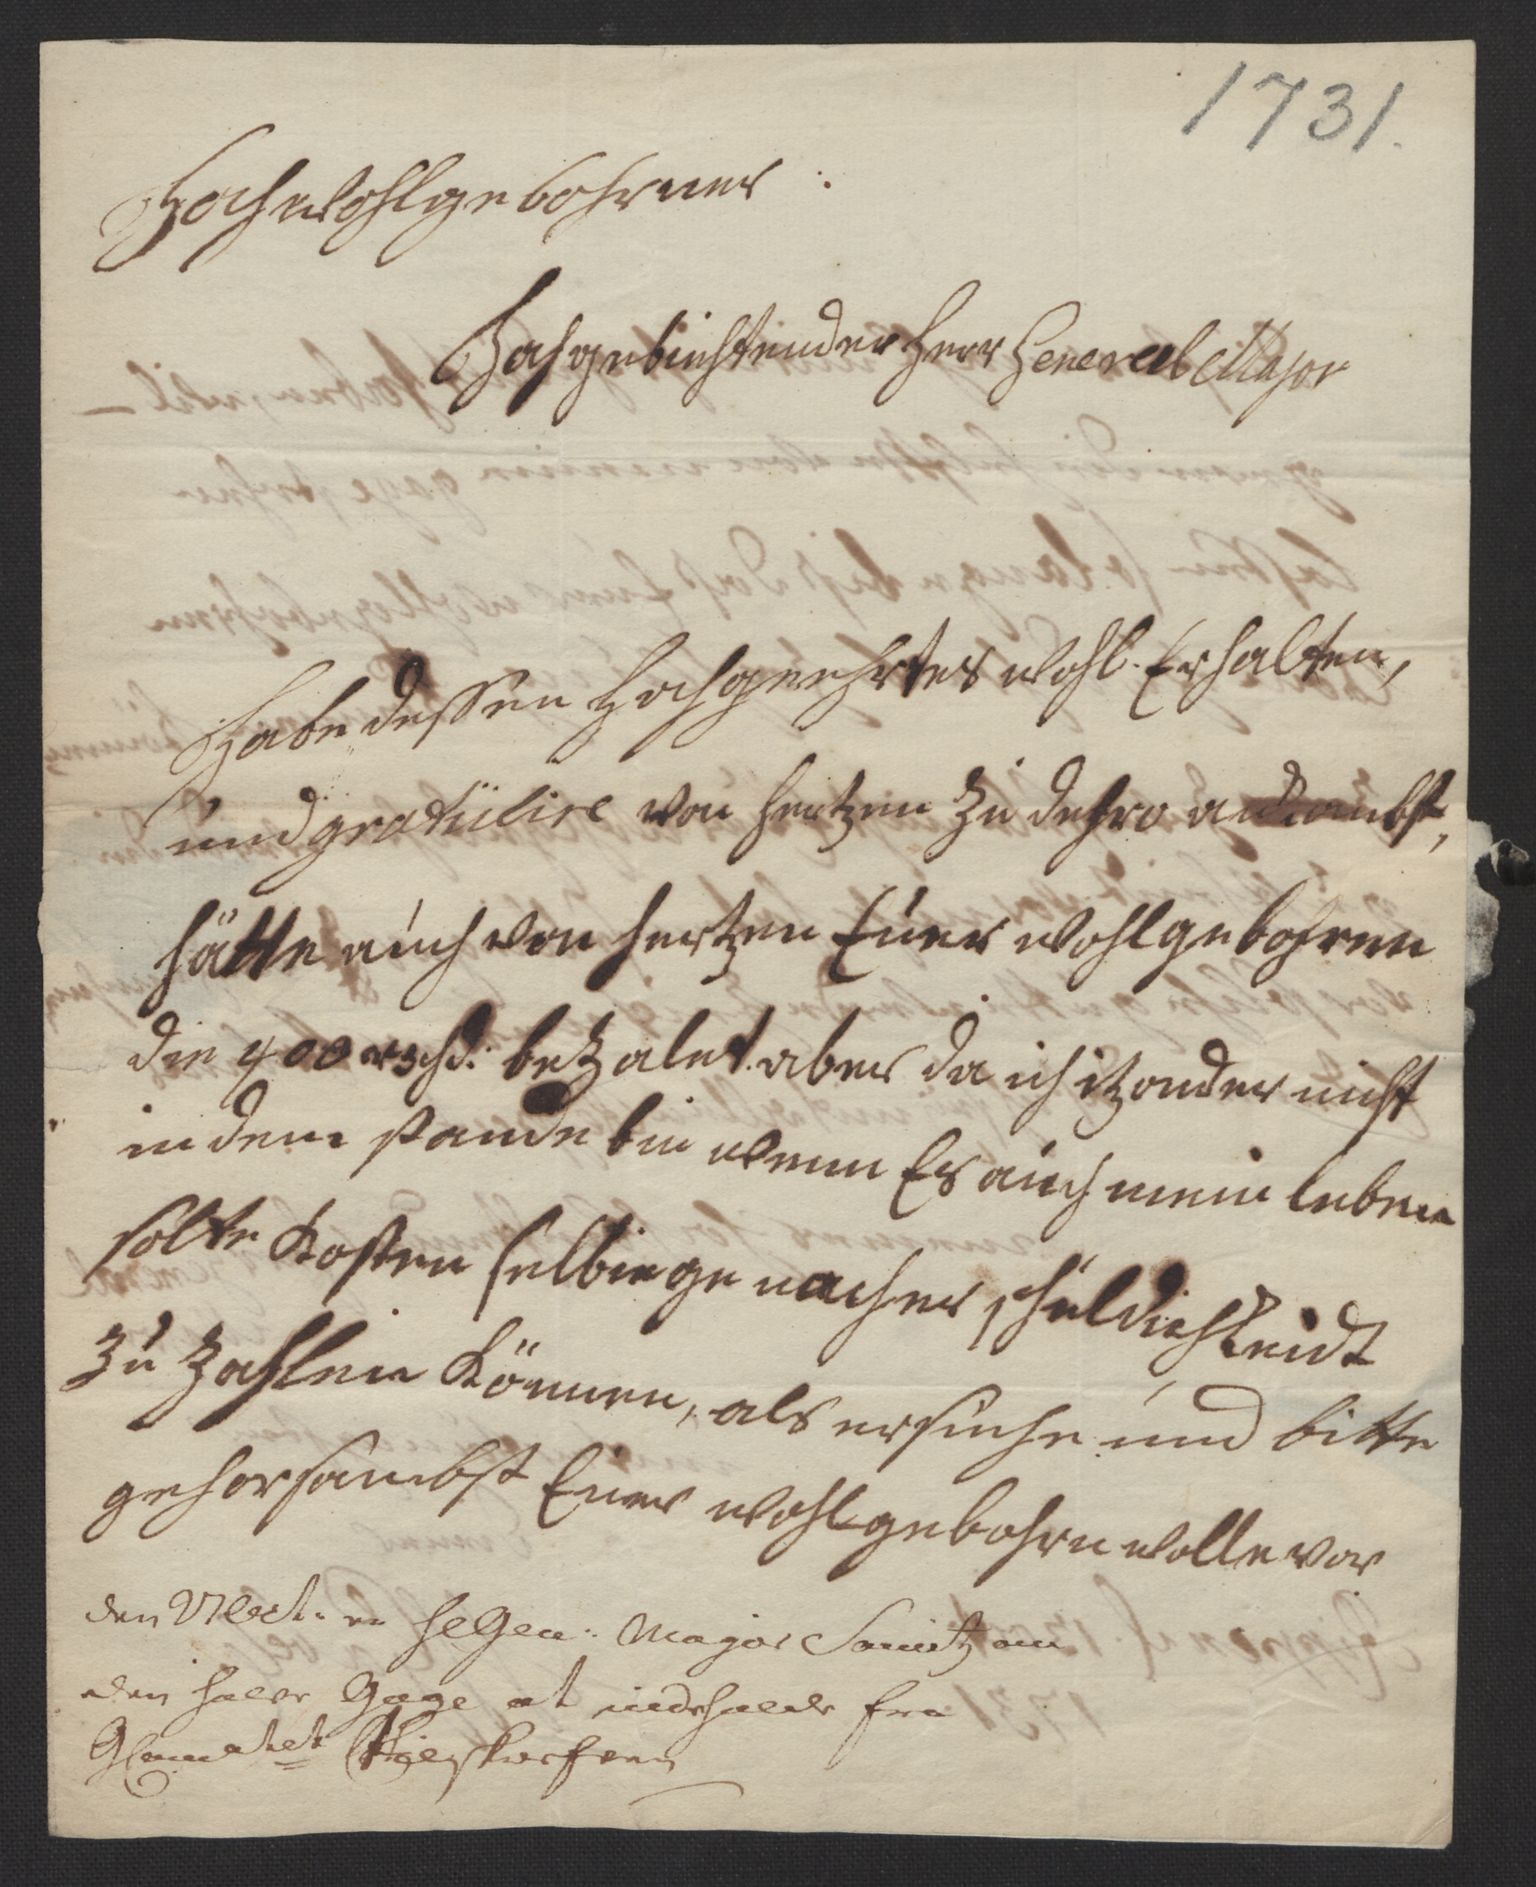 1731.
Hochwohlgebohrner
Hochgebiehtender Herr General Major
Habe dessen Hochgeehrtes wohl Erhalten,
und gratülire von hertzen zu dehro ankonfft,
hätte auch von hertzen Euer wohlgebohren
die 400 rschd: bezalet aber da ich itzonder nicht
in dem stande bin wenn Es auch mein leben
solte kosten selbiege nacher schuldichkeidt
zu zahlen können, als ersuche und bitte
gehorsambst Euer wohlgebohrn wolle vor
den Hr Gen: Major om
den halve Gage at indeholde fra